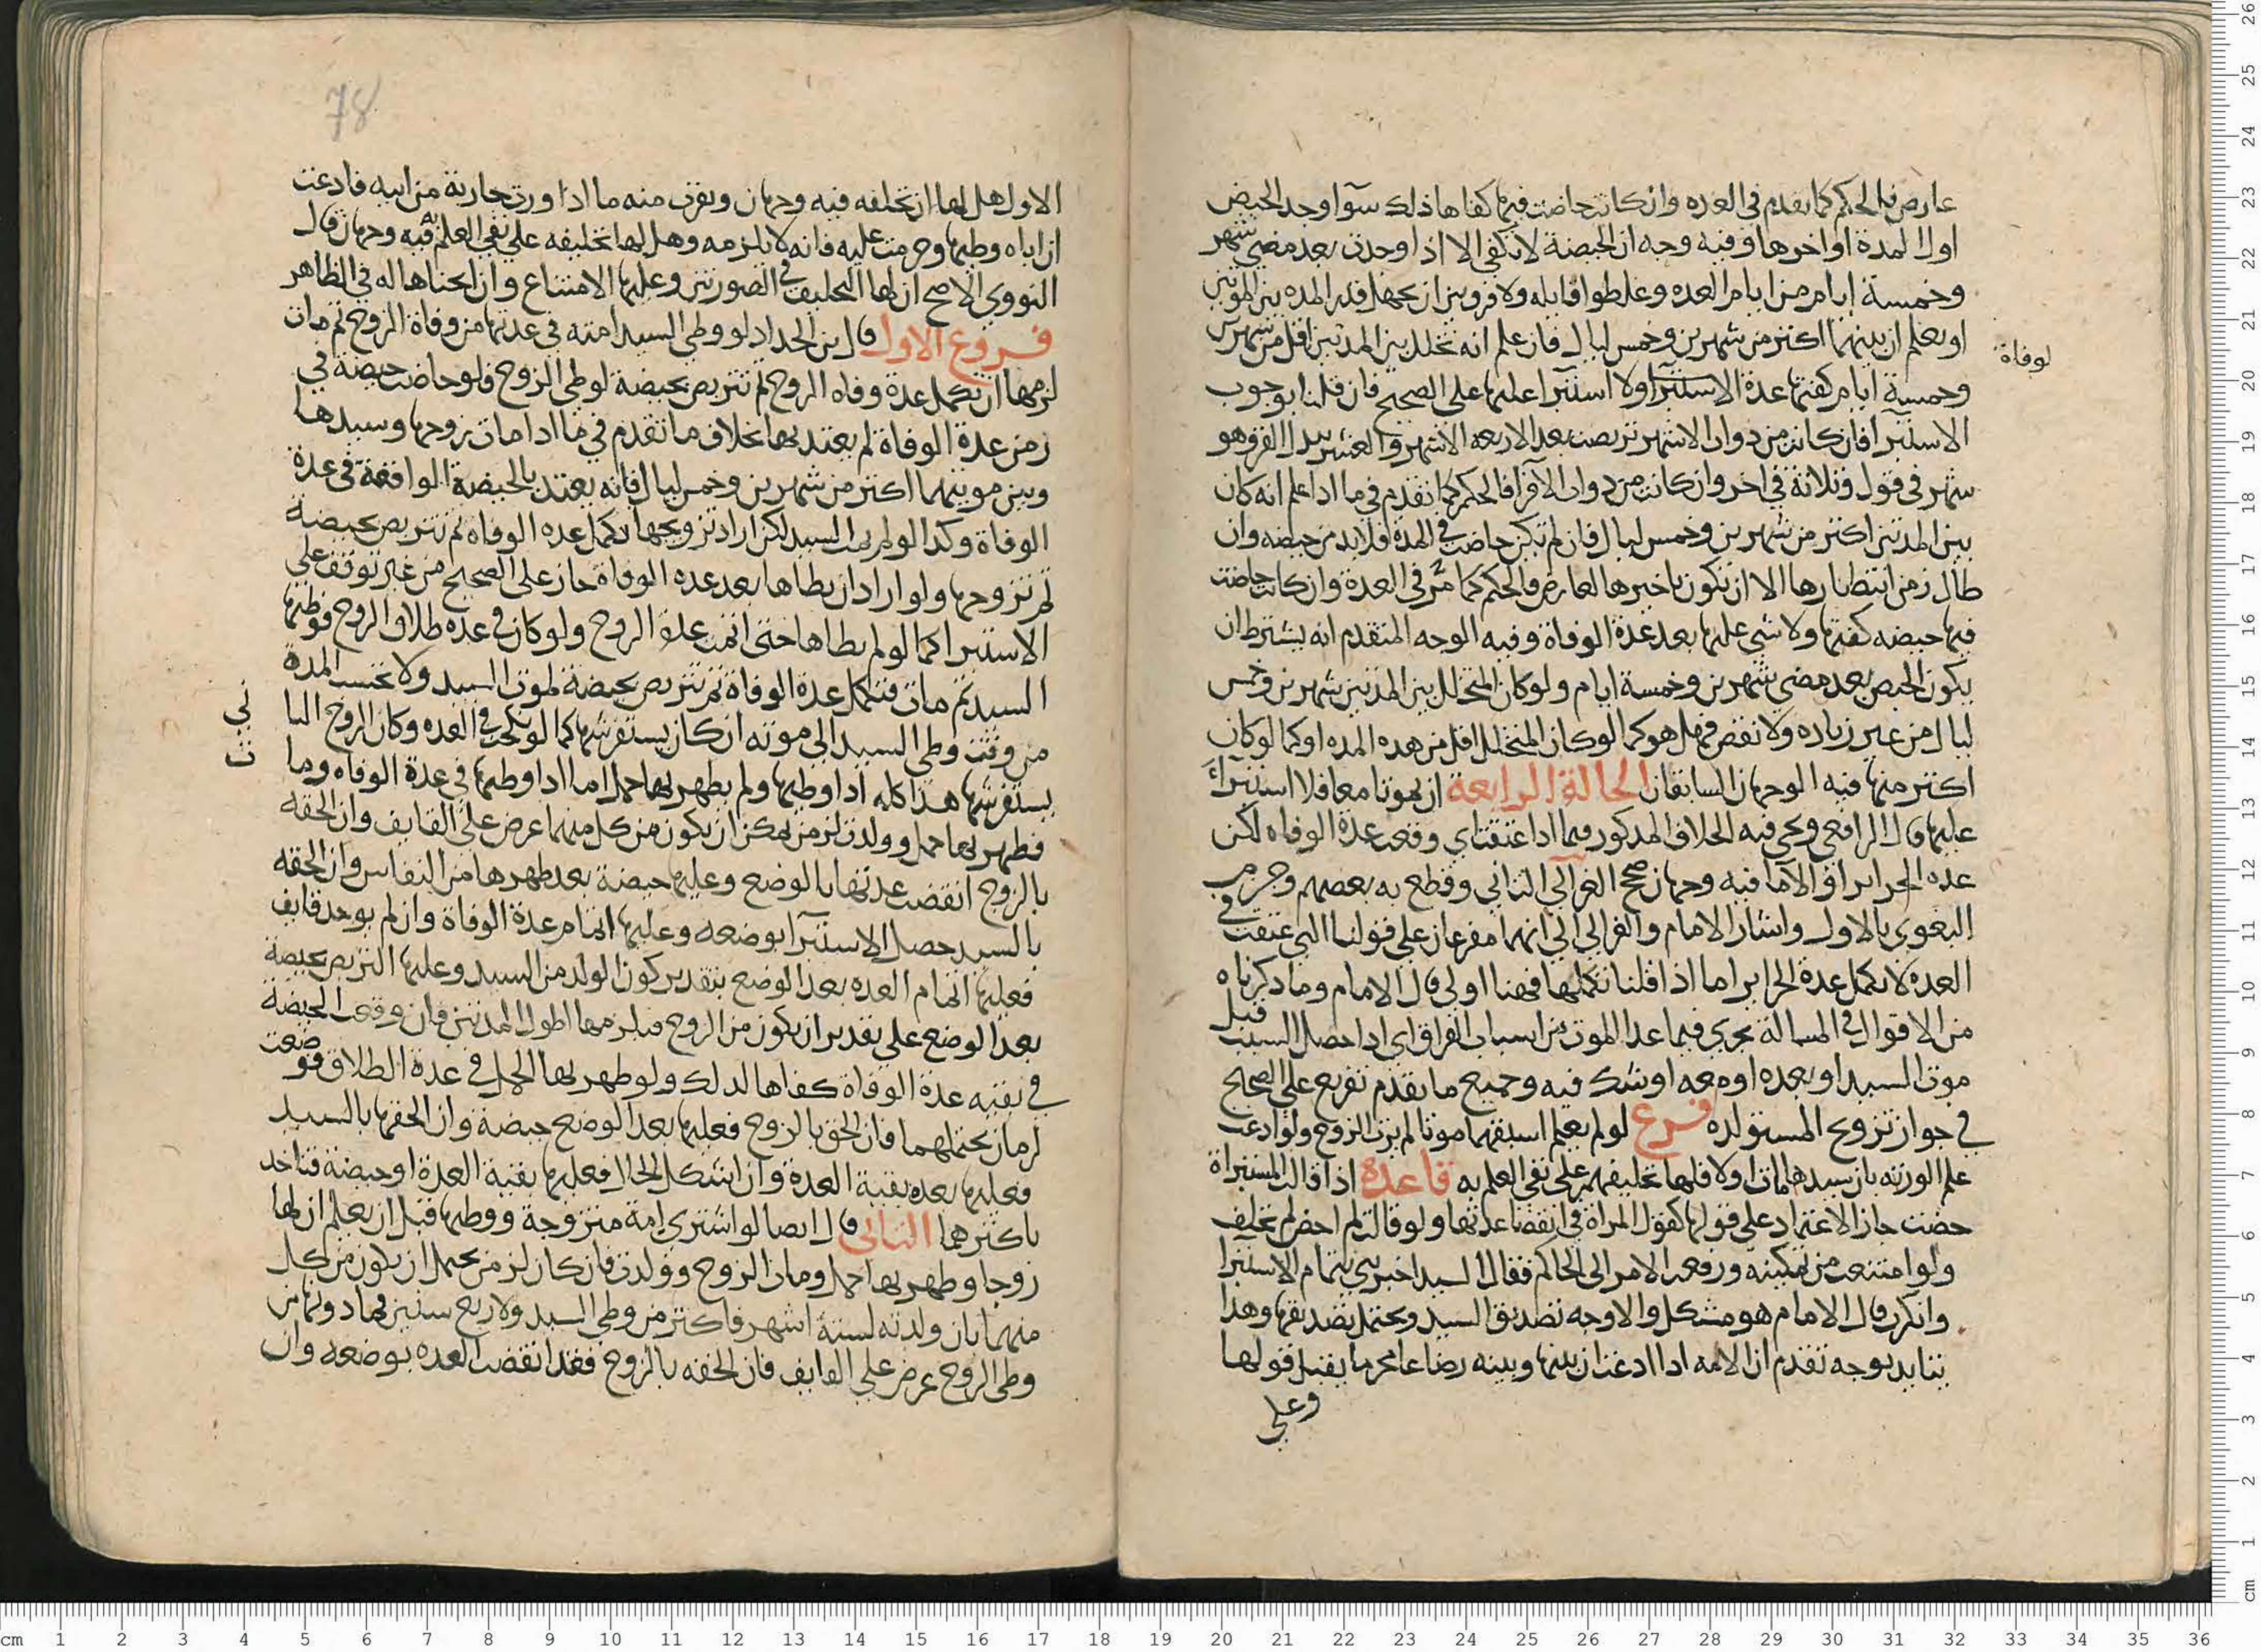 عارض فالحكم كما تقدم في العدة وان كانت حاضت فيها كفاها ذلك سوآ وجد الحيض
اول المدة او اخرها وفيه وجه ان الحيضة لا تكفي الا اذا وجدت بعد مضي شهر
وخمسة ايام من ايام العدة وغلطوا قايله ولا فرق بين ان يجهل قدر المدة بين الموتين
او يعلم ان بينهما اكثر من شهرين وخمس ليال فان علم انه تخلل بين المدتين اقل من شهرين
لوفاة
وخمسة ايام كفتها عدة الاستبرآ ولا استبرا عليها على الصحيح فان قلنا بوجوب
الاستبرآ فان كانت من ذوات الاشهر تربصت بعد الاربعة الاشهر والعشر بدل القرو وهو
شهر في قول وثلاثة في اخر وان كانت من ذوات الاقرآ فالحكم كما تقدم في ما اذا علم انه كان
بين المدتين اكثر من شهرين وخمس ليال فان لم تكن حاضت في المدة فلا بد من حيضه وان
طال زمن انتظارها الا ان يكون تاخيرها لعارض فالحكم كما مر في العدة وان كانت حاضت
فيها حيضه كفتها ولا شي عليها بعد عدة الوفاة وفيه الوجه المتقدم انه يشترط ان
يكون الحيض بعد مضي شهرين وخمسة ايام ولو كان المتخلل بين المدتين شهرين وخمس
ليال من غير زياده ولا نقص فهل هو كما لو كان المتخلل اقل من هذه المده او كما لو كان
اكثر منها فيه الوجهان السابقان الحالة الرابعة ان يموتا معا فلا استبرآ
عليها قال الرافعي ويجي فيه الخلاف المذكور فيما اذا عتقت اي وقعت عدة الوفاه لكن
عده الحراير او الاما فيه وجهان صحح الغزالي الثاني وقطع به بعضهم وجزم
البغوي بالاول واشار الامام والغزالي الي انهما مفرعان على قولنا التي عتقت في
العده لا تكمل عدة الحراير اما اذا قلنا تكملها فهنا اولى قال الامام وما ذكرناه
من الاقوال في المسالة يجري فيما عدا الموت من اسباب الفراق اي اذا حصل السبب قبل
موت السيد او بعده او معه او شك فيه وجميع ما تقدم تفريع على الصحيح
في جواز تزويج المستولده فرع لو لم يعلم اسبقهما موتا لم يرث الزوج ولو ادعت
علم الورثه بان سيدها مات اولا فلها تحليفهم على نفي العلم به قاعدة اذا قالت المستبراة
حضت جاز الاعتماد على قولها كقول المراة في انقضا عدتها ولو قالت لم احض لم تحلف
ولو امتنعت من تمكينه ورفعت الامر الى الحاكم فقال السيد اخبرتني بتمام الاستبرا
وانكرت قال الامام هو مشكل والاوجه تصديق السيد ويحتمل تصديقها وهذا
يتايد بوجه تقدم ان الامه اذا ادعت ان بينها وبينه رضاعا محرما يقبل قولها
وعلى
78
الاول هل لها ان تحلفه فيه وجهان ويقرب منه ما اذا ورث جارية من ابيه فادعت
ان اباه وطيها وحرمت عليه فانه لا يلزمه وهل لها تحليفه على نفي العلم فيه وجهان قال
النووي الاصح ان لها التحليف في الصورتين وعليها الامتناع وان ابحناها له في الظاهر
فروع الاول قال بن الحداد لو وطي السيد امته في عدتها من وفاة الزوج ثم مات
لزمها ان تكمل عدة وفاه الزوج ثم تتربص بحيضة لوطي الزوج فلو حاضت حيضة في
زمن عدة الوفاة لم يعتد بها بخلاف ما تقدم في ما اذا مات زوجها وسيدها
وبين موتيهما اكثر من شهرين وخمس ليال فانه يعتد بالحيضة الواقعة في عدة
الوفاة وكذا لو لم يمت السيد لكن اراد تزويجها تكمل عده الوفاه ثم تتربص بحيضة
ثم تزوجها ولو اراد ان يطاها بعد عده الوفاة جاز على الصحيح من غير توقف على
الاستبرا كما لو لم يطاها حتى اتمت عدة الزوج ولو كان في عده طلاق الزوج فوطيها
السيد ثم مات فتكمل عدة الوفاة ثم تتربص بحيضة لموت السيد ولا تحتسب المدة
من وقت وطي السيد الي موته ان كان يستفرشها كما لو نكحت في العده وكان الزوج الثا
ني
ث
يستفرشها هذا كله اذا وطيها ولم يظهر بها حمل اما اذا وطيها في عدة الوفاه وما
فظهر بها حمل وولدت لزمن يمكن ان يكون من كل منهما عرض على القايف وان الحقه
بالزوج انقضت عدتها بالوضع وعليها حيضة بعد طهرها من النفاس وان الحقه
بالسيد حصل الاستبرآ بوضعه وعليها اتمام عدة الوفاة وان لم يوجد قايف
فعليها اتمام العده بعد الوضع بتقدير كون الولد من السيد وعليها التربص بحيضة
بعد الوضع على تقدير ان يكون من الزوج فيلزمها اطول المدتين فان وقعت الحيضة
في بقيه عدة الوفاة كفاها لذلك ولو ظهر بها الحمل في عدة الطلاق فوضعت
لزمان يحتملهما فان لحق بالزوج فعليها بعد الوضع حيضة وان الحقها بالسيد
فعليها بعده بقية العدة وان اشكل الحال فعليها بقية العدة او حيضة فتاخذ
باكثرهما الثاني قال ايضا لو اشترى امة متزوجة ووطيها قبل ان يعلم ان لها
زوجا وظهر بها حمل ومات الزوج وولدت فان كان لزمن يحتمل ان يكون من كل
منهما بان ولدته لستة اشهر فاكثر من وطي السيد ولاربع سنين فما دونها من
وطي الزوج عرض على القايف فان الحقه بالزوج فقد انقضت العده بوضعه وان